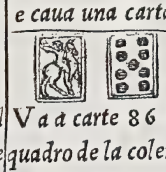 e caua una carta
V a à carte 86
quadro de la cole